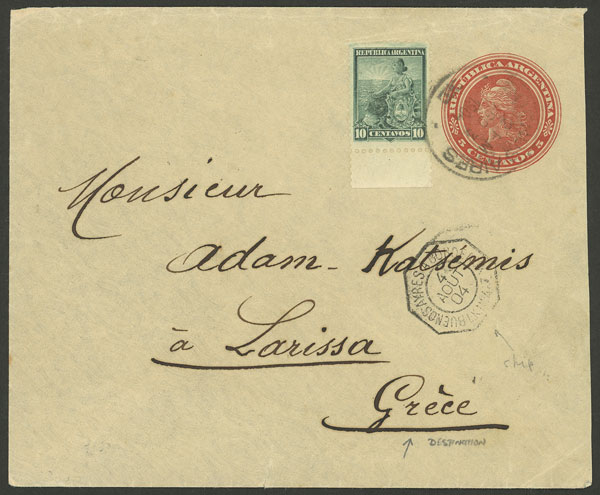 REPUBLICA ARGENTINA
10 CENTAVOS 10
REPUBLICA ARGENTINA
5 CENTAVOS 5
AIRES
Monsieur
Adam-Katsémis
BUENOS AYRES
4
AOUT
04
à Larissa
Grèce
DESTINATION